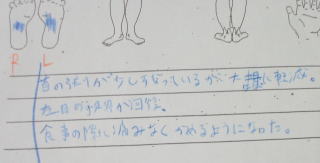 R L
首の張りが少し残っているが、大幅に軽減。
左目の視力が回復。
食事の際に痛みなくかめるようになった。